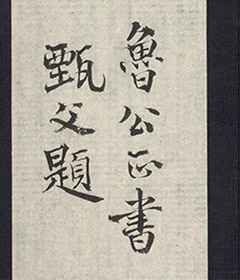 魯公正書
甄父題